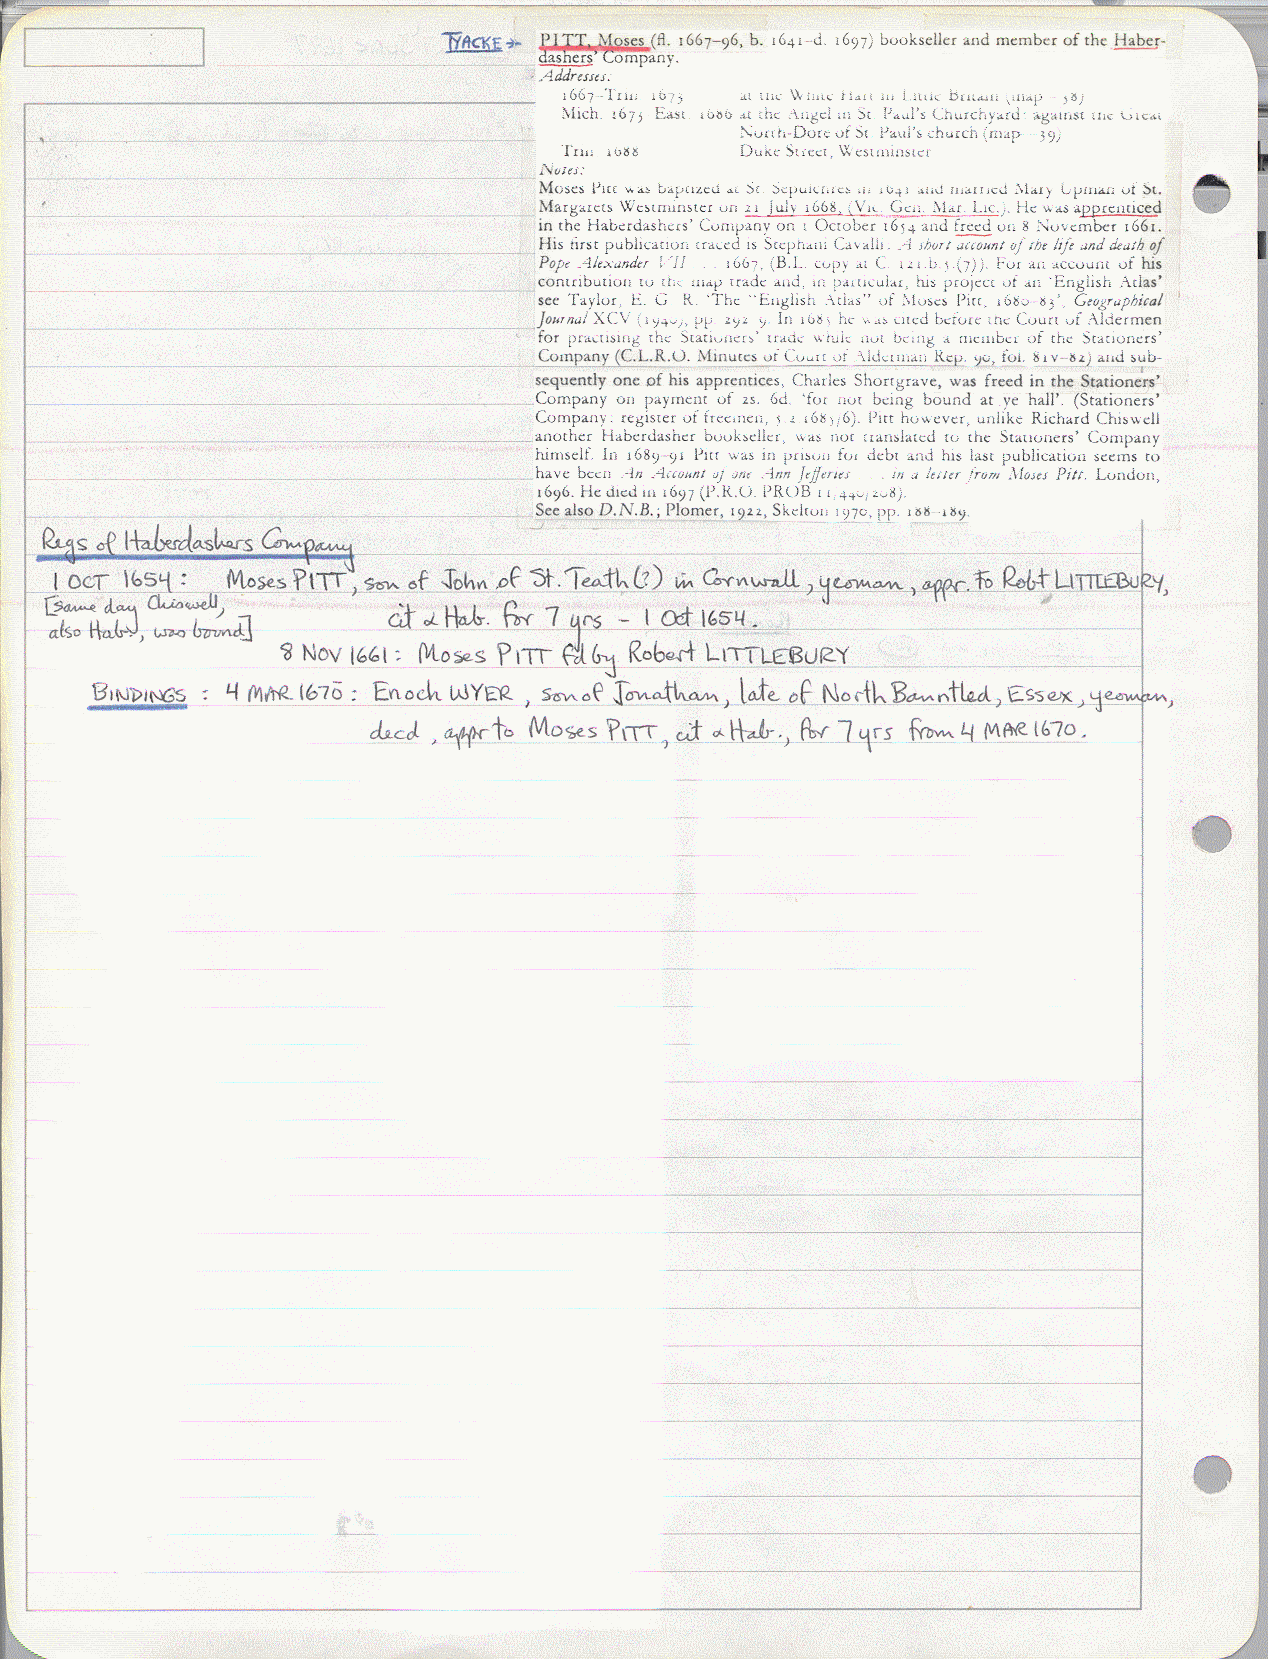 TYACKE → PITT, Moses (fl. 1667–96, b. 1641–d. 1697) bookseller and member of the Haber-
dashers' Company.
Addresses:
1667–Trin 1673 at the White Hart in Little Britain (map – 38)
Mich. 1673 East. 1686 at the Angel in St Paul's Churchyard against the Great
North-Dore of St. Paul's church (map 39)
Trin 1688 Duke Street, Westminster
Notes:
Moses Pitt was baptized at St. Sepulchres in 1641 and married Mary Upman of St.
Margarets Westminster on 21 July 1668, (Vic. Gen. Mar. Lic.). He was apprenticed
in the Haberdashers' Company on 1 October 1654 and freed on 8 November 1661.
His first publication traced is Stephani Cavalli. A short account of the life and death of
Pope Alexander VII . . 1667, (B.L. copy at C. 121.b.5.(7)). For an account of his
contribution to the map trade and, in particular, his project of an 'English Atlas'
see Taylor, E. G R. 'The "English Atlas" of Moses Pitt, 1680–83', Geographical
Journal XCV (1940), pp. 292 9. In 1685 he was cited before the Court of Aldermen
for practising the Stationers' trade while not being a member of the Stationers'
Company (C.L.R.O. Minutes of Court of Alderman Rep. 90, fol. 81v–82) and sub-
sequently one of his apprentices, Charles Shortgrave, was freed in the Stationers'
Company on payment of 2s. 6d. 'for not being bound at ye hall'. (Stationers'
Company: register of freemen, 5 2 1685/6). Pitt however, unlike Richard Chiswell
another Haberdasher bookseller, was not translated to the Stationers' Company
himself. In 1689–91 Pitt was in prison for debt and his last publication seems to
have been An Account of one Ann Jefferies . . in a letter from Moses Pitt. London,
1696. He died in 1697 (P.R.O. PROB 11/440/208).
See also D.N.B.; Plomer, 1922, Skelton 1970, pp. 188–189.
Regs of Haberdashers Company
1 OCT 1654: Moses PITT, son of John of St. Teath (?) in Cornwall, yeoman, appr. to Robt LITTLEBURY,
[same day Chiswell,
also Habr, was bound]
cit & Hab. for 7 yrs – 1 Oct 1654.
8 NOV 1661: Moses PITT fd by Robert LITTLEBURY
BINDINGS: 4 MAR 1670: Enoch WYER, son of Jonathan, late of North Bauntled, Essex, yeoman,
decd, appr to Moses PITT, cit & Hab., for 7 yrs from 4 MAR 1670.